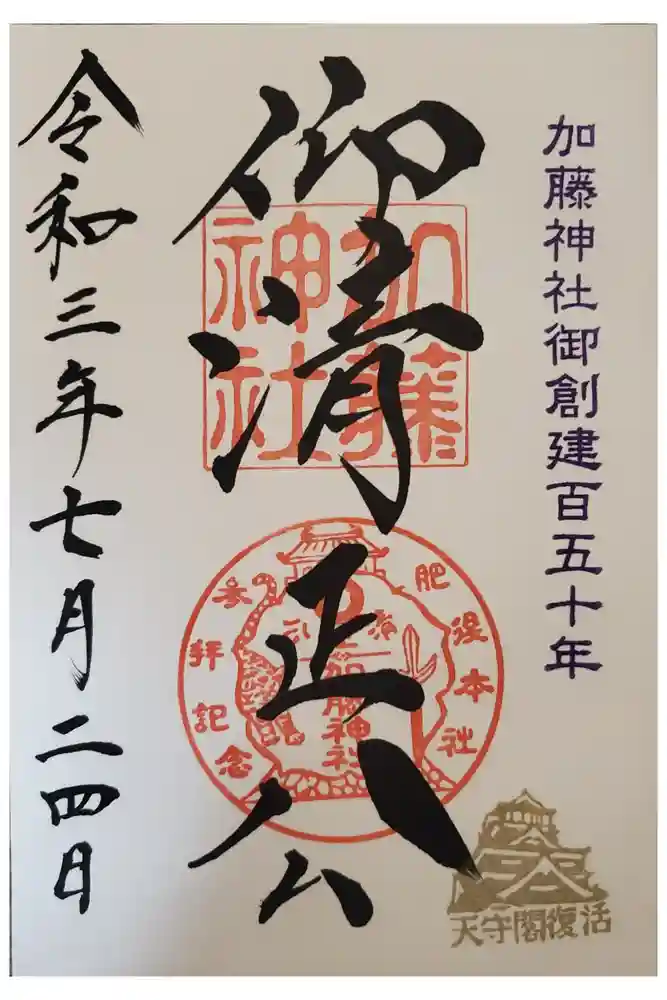 加藤神社御創建百五十年
仰清正公
加藤
神社
肥後本社
参拝記念
加藤神社
天守閣復活
令和三年七月二四日